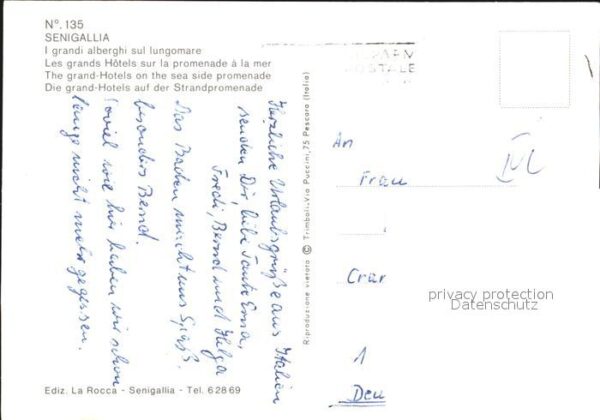 N°. 135
SENIGALLIA
I grandi alberghi sul lungomare
Les grands Hôtels sur la promenade à la mer
The grand-Hotels on the sea side promenade
Die grand-Hotels auf der Strandpromenade
Herzliche Urlaubsgrüße aus Italien
senden Dir, liebe Tante Erna,
Fredi, Bernd und Helga
Das Baden macht uns Spaß.
besonders Bernd.
Soviel wie hier haben wir schon
lange nicht mehr gegessen.
Ediz. La Rocca - Senigallia - Tel. 62869
Riproduzione vietata © Trimboli-Via Puccini,25 Pescara (Italia)
POSTALE
An
Frau
Crar
1
Deu
privacy protection
Datenschutz